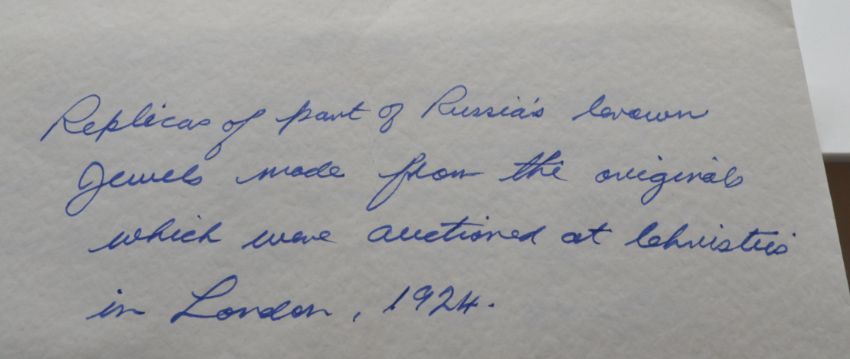 Replicas of part of Russia's Crown
Jewels made from the originals
which were auctioned at Christie's
in London, 1924.